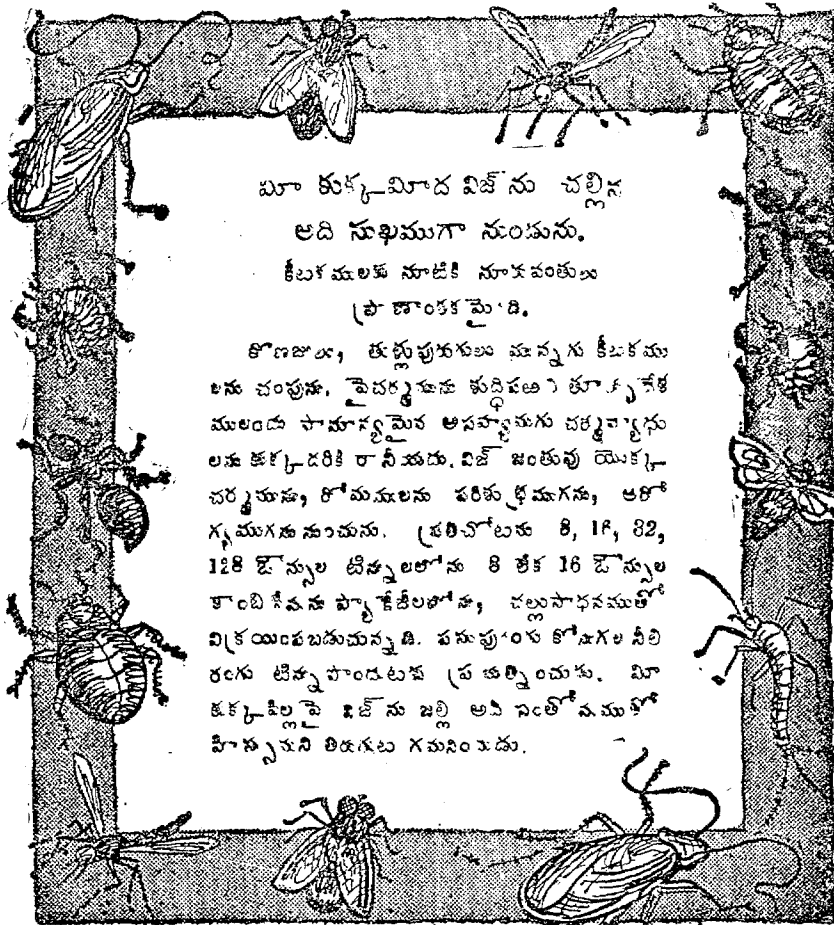 మీ కుక్క మీద విజ్‌ను చల్లిన
అది సుఖముగా నుండును.
కీటకములకు నూటికి నూరువంతులు
ప్రాణాంతకమైనది.
గోణజులు, తుళ్లుపురుగులు మున్నగు కీటకము
లను చంపును. పైచర్మమును శుద్ధిపఱచి
ములందు సామాన్యమైన అసహ్యానుగు చర్మవ్యాధు
లను కుక్క దరికి రానీయదు. విజ్ జంతువు యొక్క
చర్మమును, రోమములను పరిశుభ్రముగను, ఆరో
గ్యముగను నుంచును. ప్రతిచోటను 8, 16, 32,
128 ఔన్సుల టిన్నులలోను 8 లేక 16 ఔన్సుల
కాంబినేషను ప్యాకేజీలలోను, చల్లుసాధనముతో
విక్రయింపబడుచున్నది. పసుపురంగు కోనుగల నీలి
రంగు టిన్ను పొందుటకు ప్రయత్నించుడు. మీ
కుక్కపిల్లపై విజ్‌ను జల్లి అవి సంతోషముతో
తిరుగుట గమనించుడు.